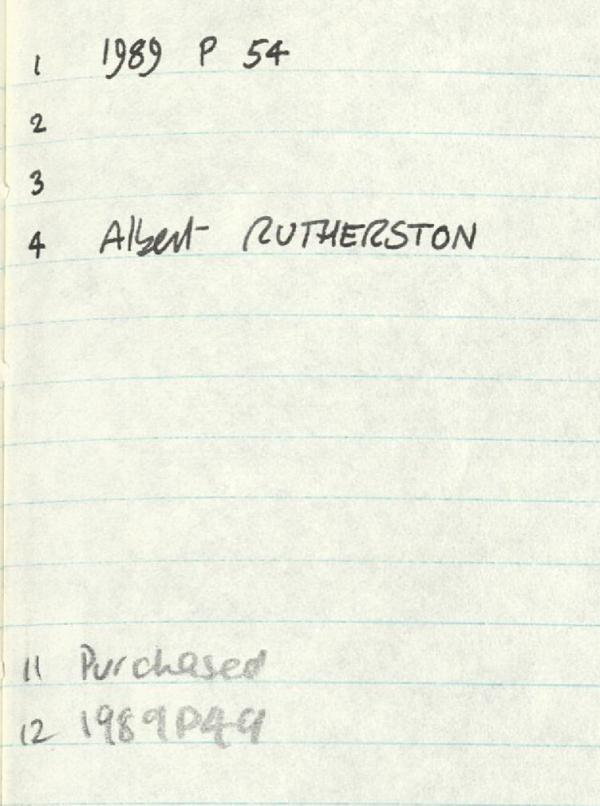 1 1989 P 54
2
3
4 Albert RUTHERSTON
11 Purchased
12 1989P49